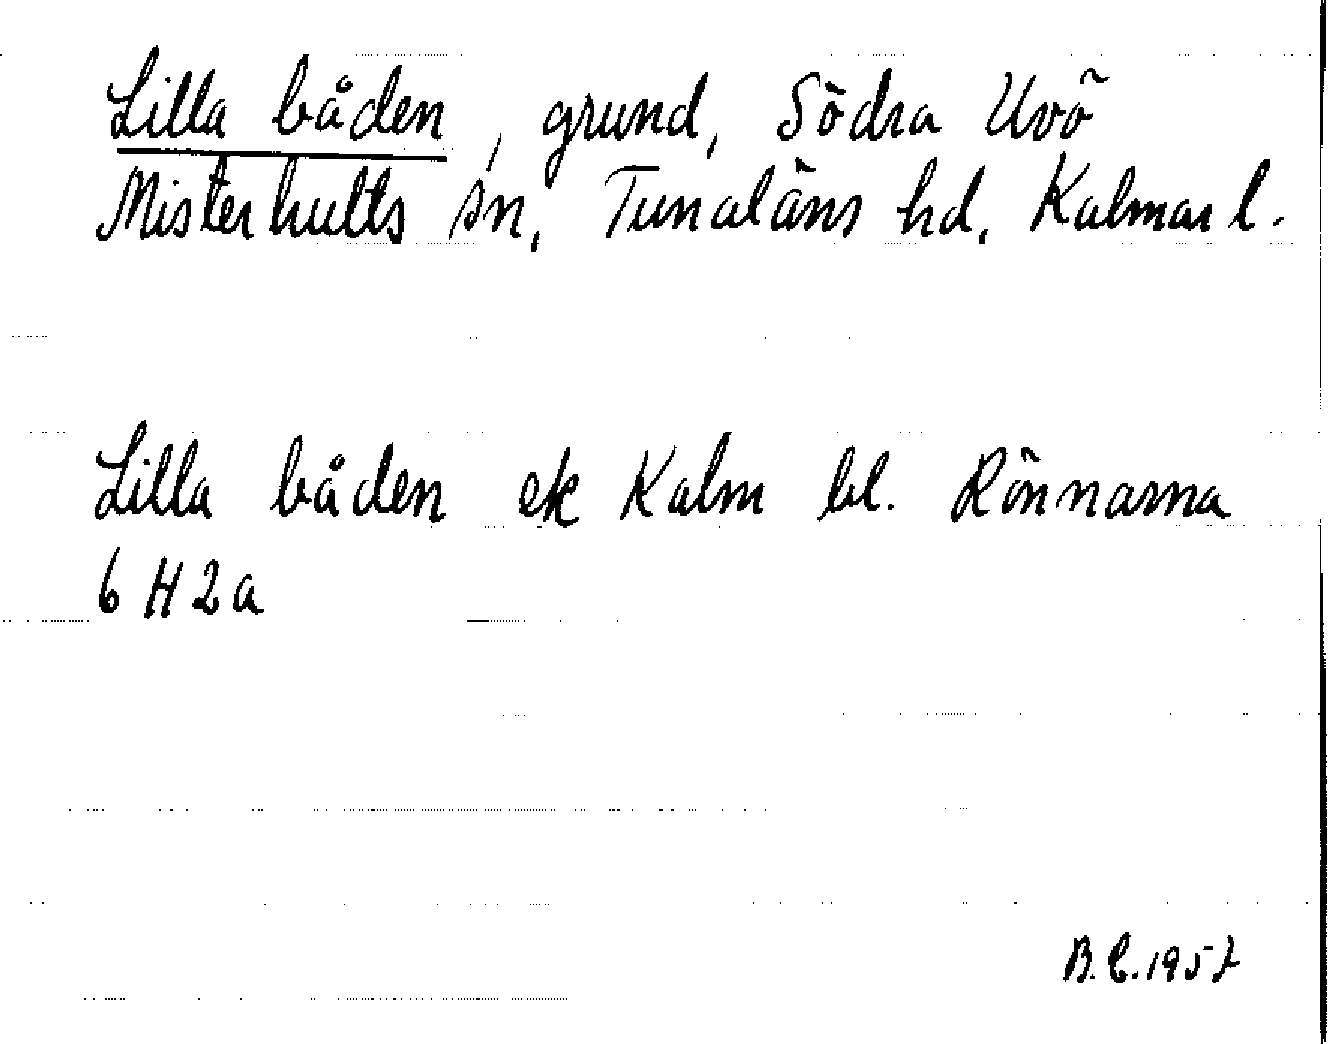 Lilla båden, grund, Södra Uvö
Misterhults sn, Tunaläns hd, Kalmar l.
Lilla båden ek Kalm bl. Rönnarna
6 H 2 a
B.C. 1957